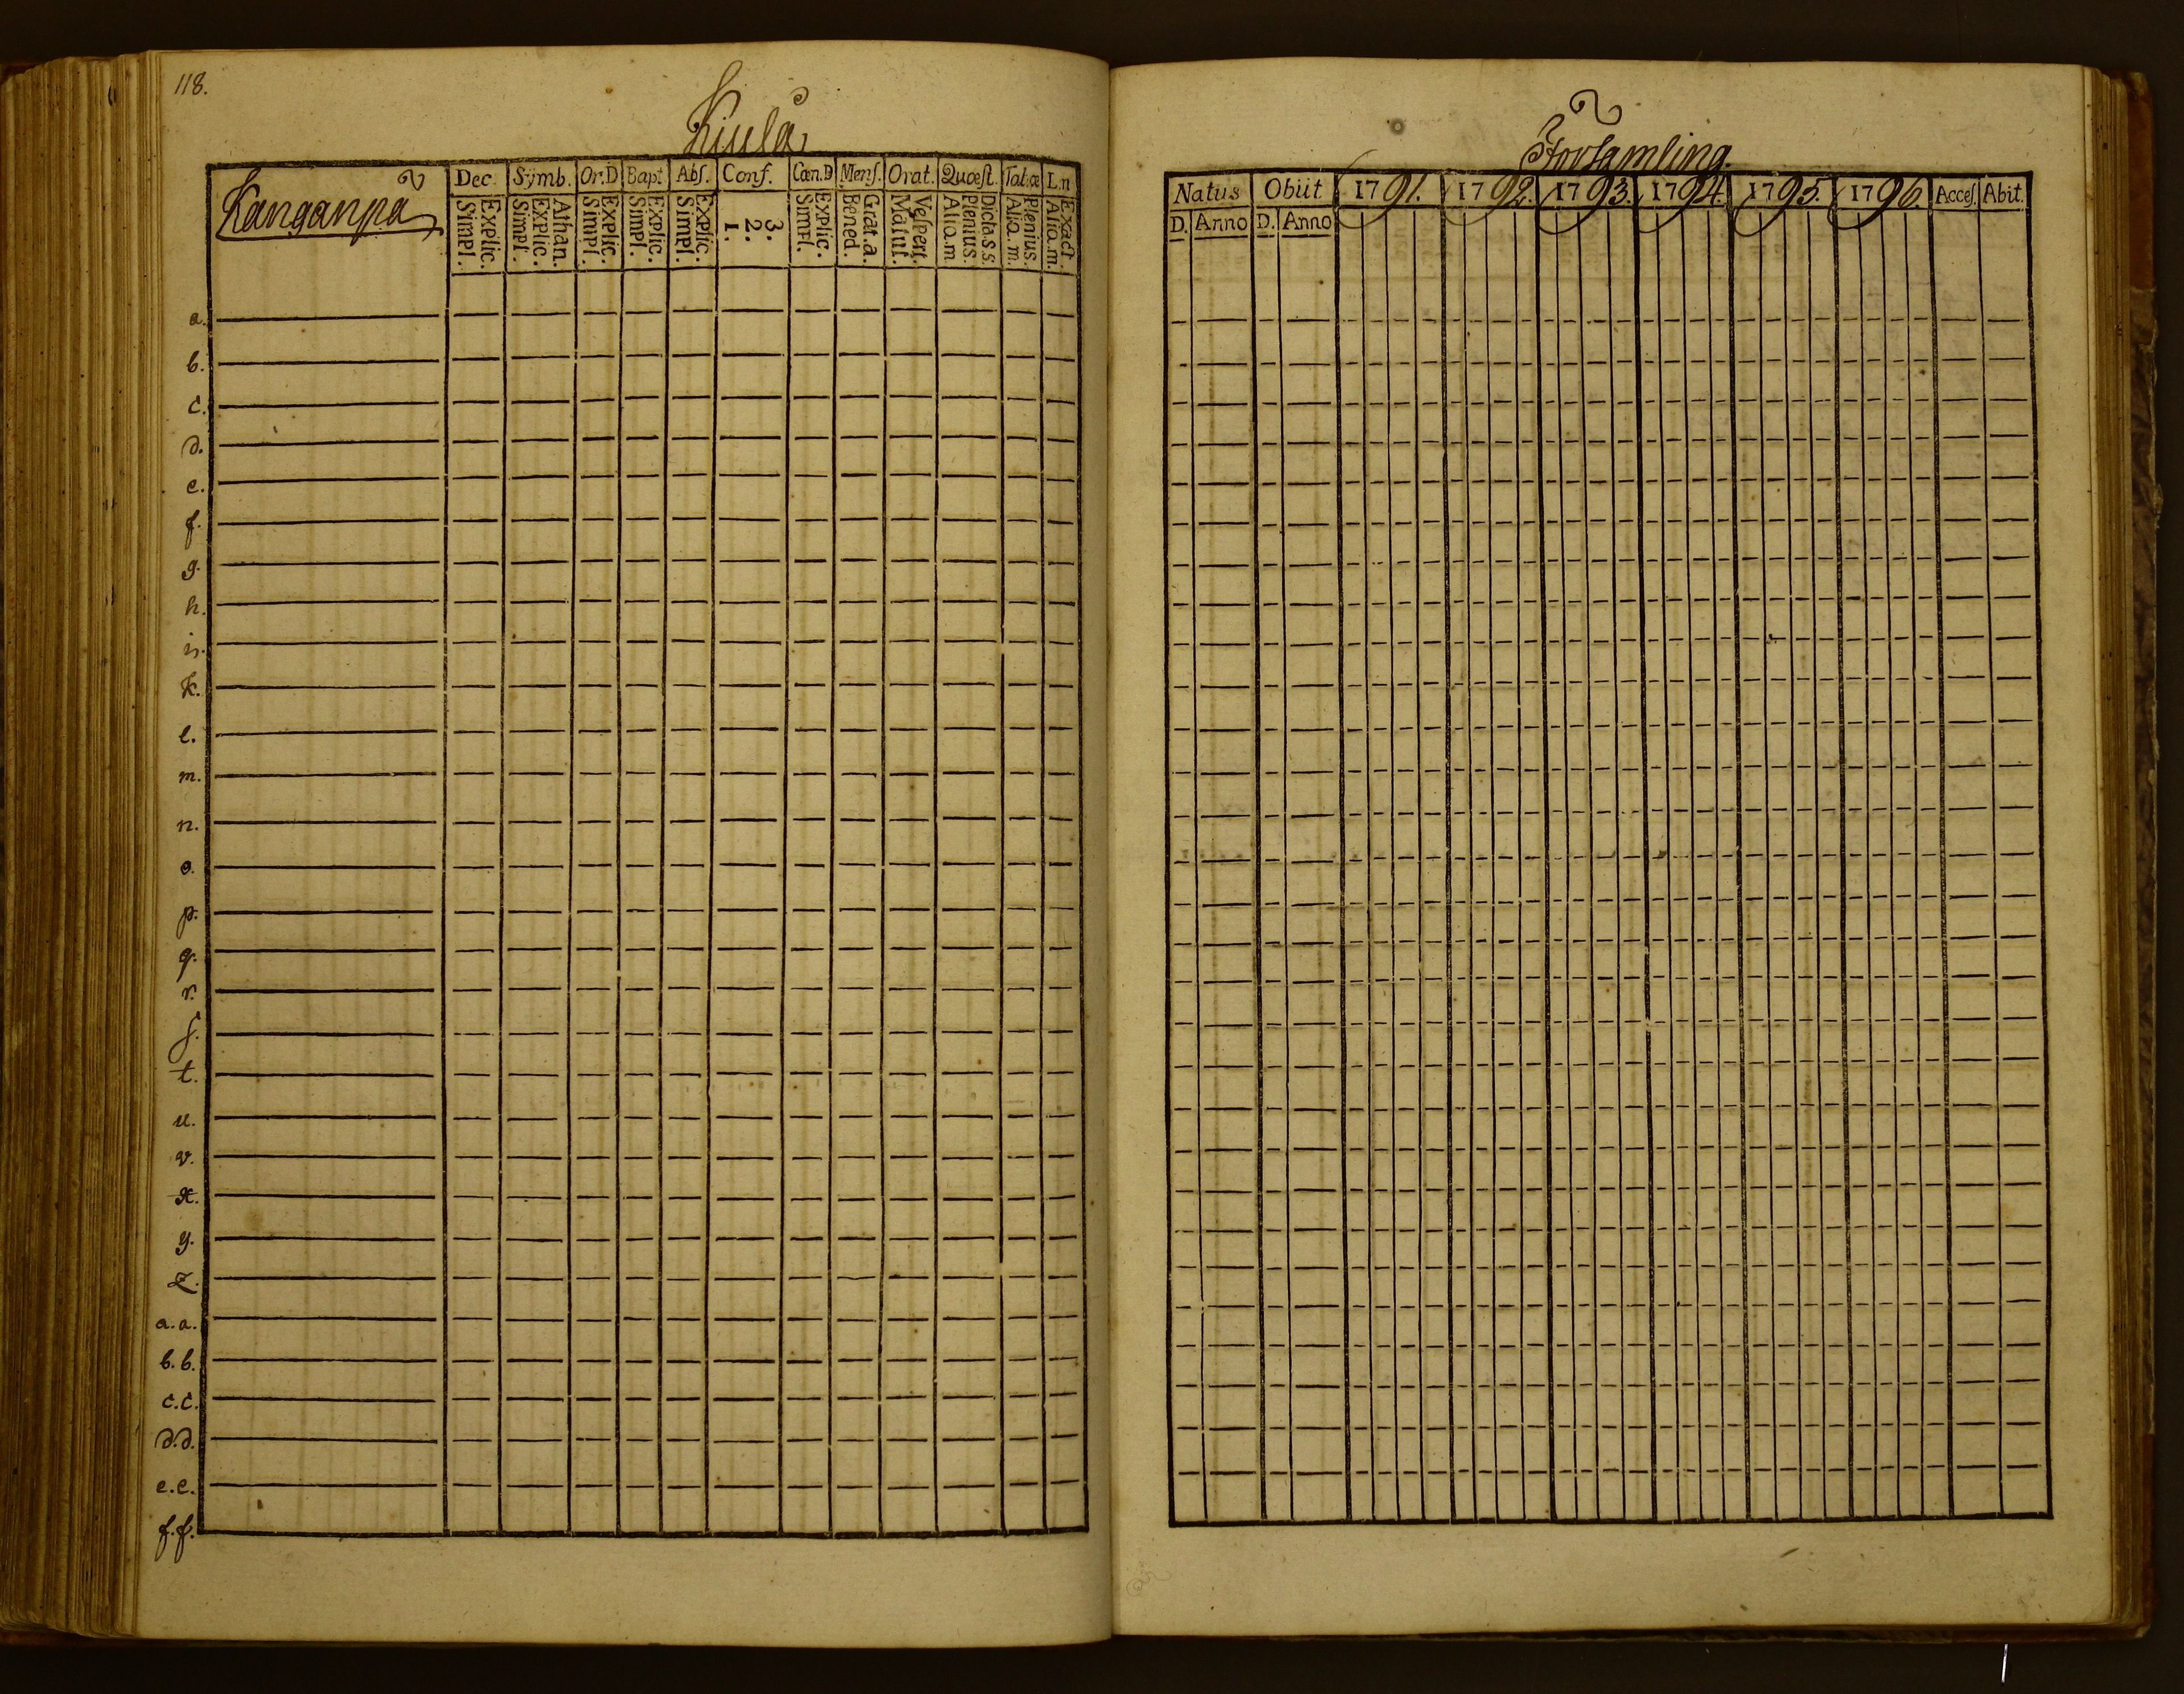 118.
Kiula
Kanganpä
Dec. Symb. Or.D Bapt Abs. Conf. Cœn.D Mens. Orat. Quæst. Tab.œ L.n
Explic. Simpl. Athan. Explic. Simpl. Explic. Simpl. Explic. Simpl. Explic. Simpl. 3. 2. 1. Explic. Simpl. Grat.a. Bened. Vespert. Matut. Dicta.s s. Plenius. Aliq.m Plenius. Aliq.m. Exact. Aliq.m.
a.
b.
c.
d.
e.
f.
g.
h.
i.
k.
l.
m.
n.
o.
p.
q.
r.
s.
t.
u.
v.
x.
y.
z.
a.a.
b.b.
c.c.
d.d.
e.e.
f.f.
Församling.
Natus Obiit 1791. 1792. 1793. 1794. 1795. 1796. Acces. Abit.
D. Anno D. Anno